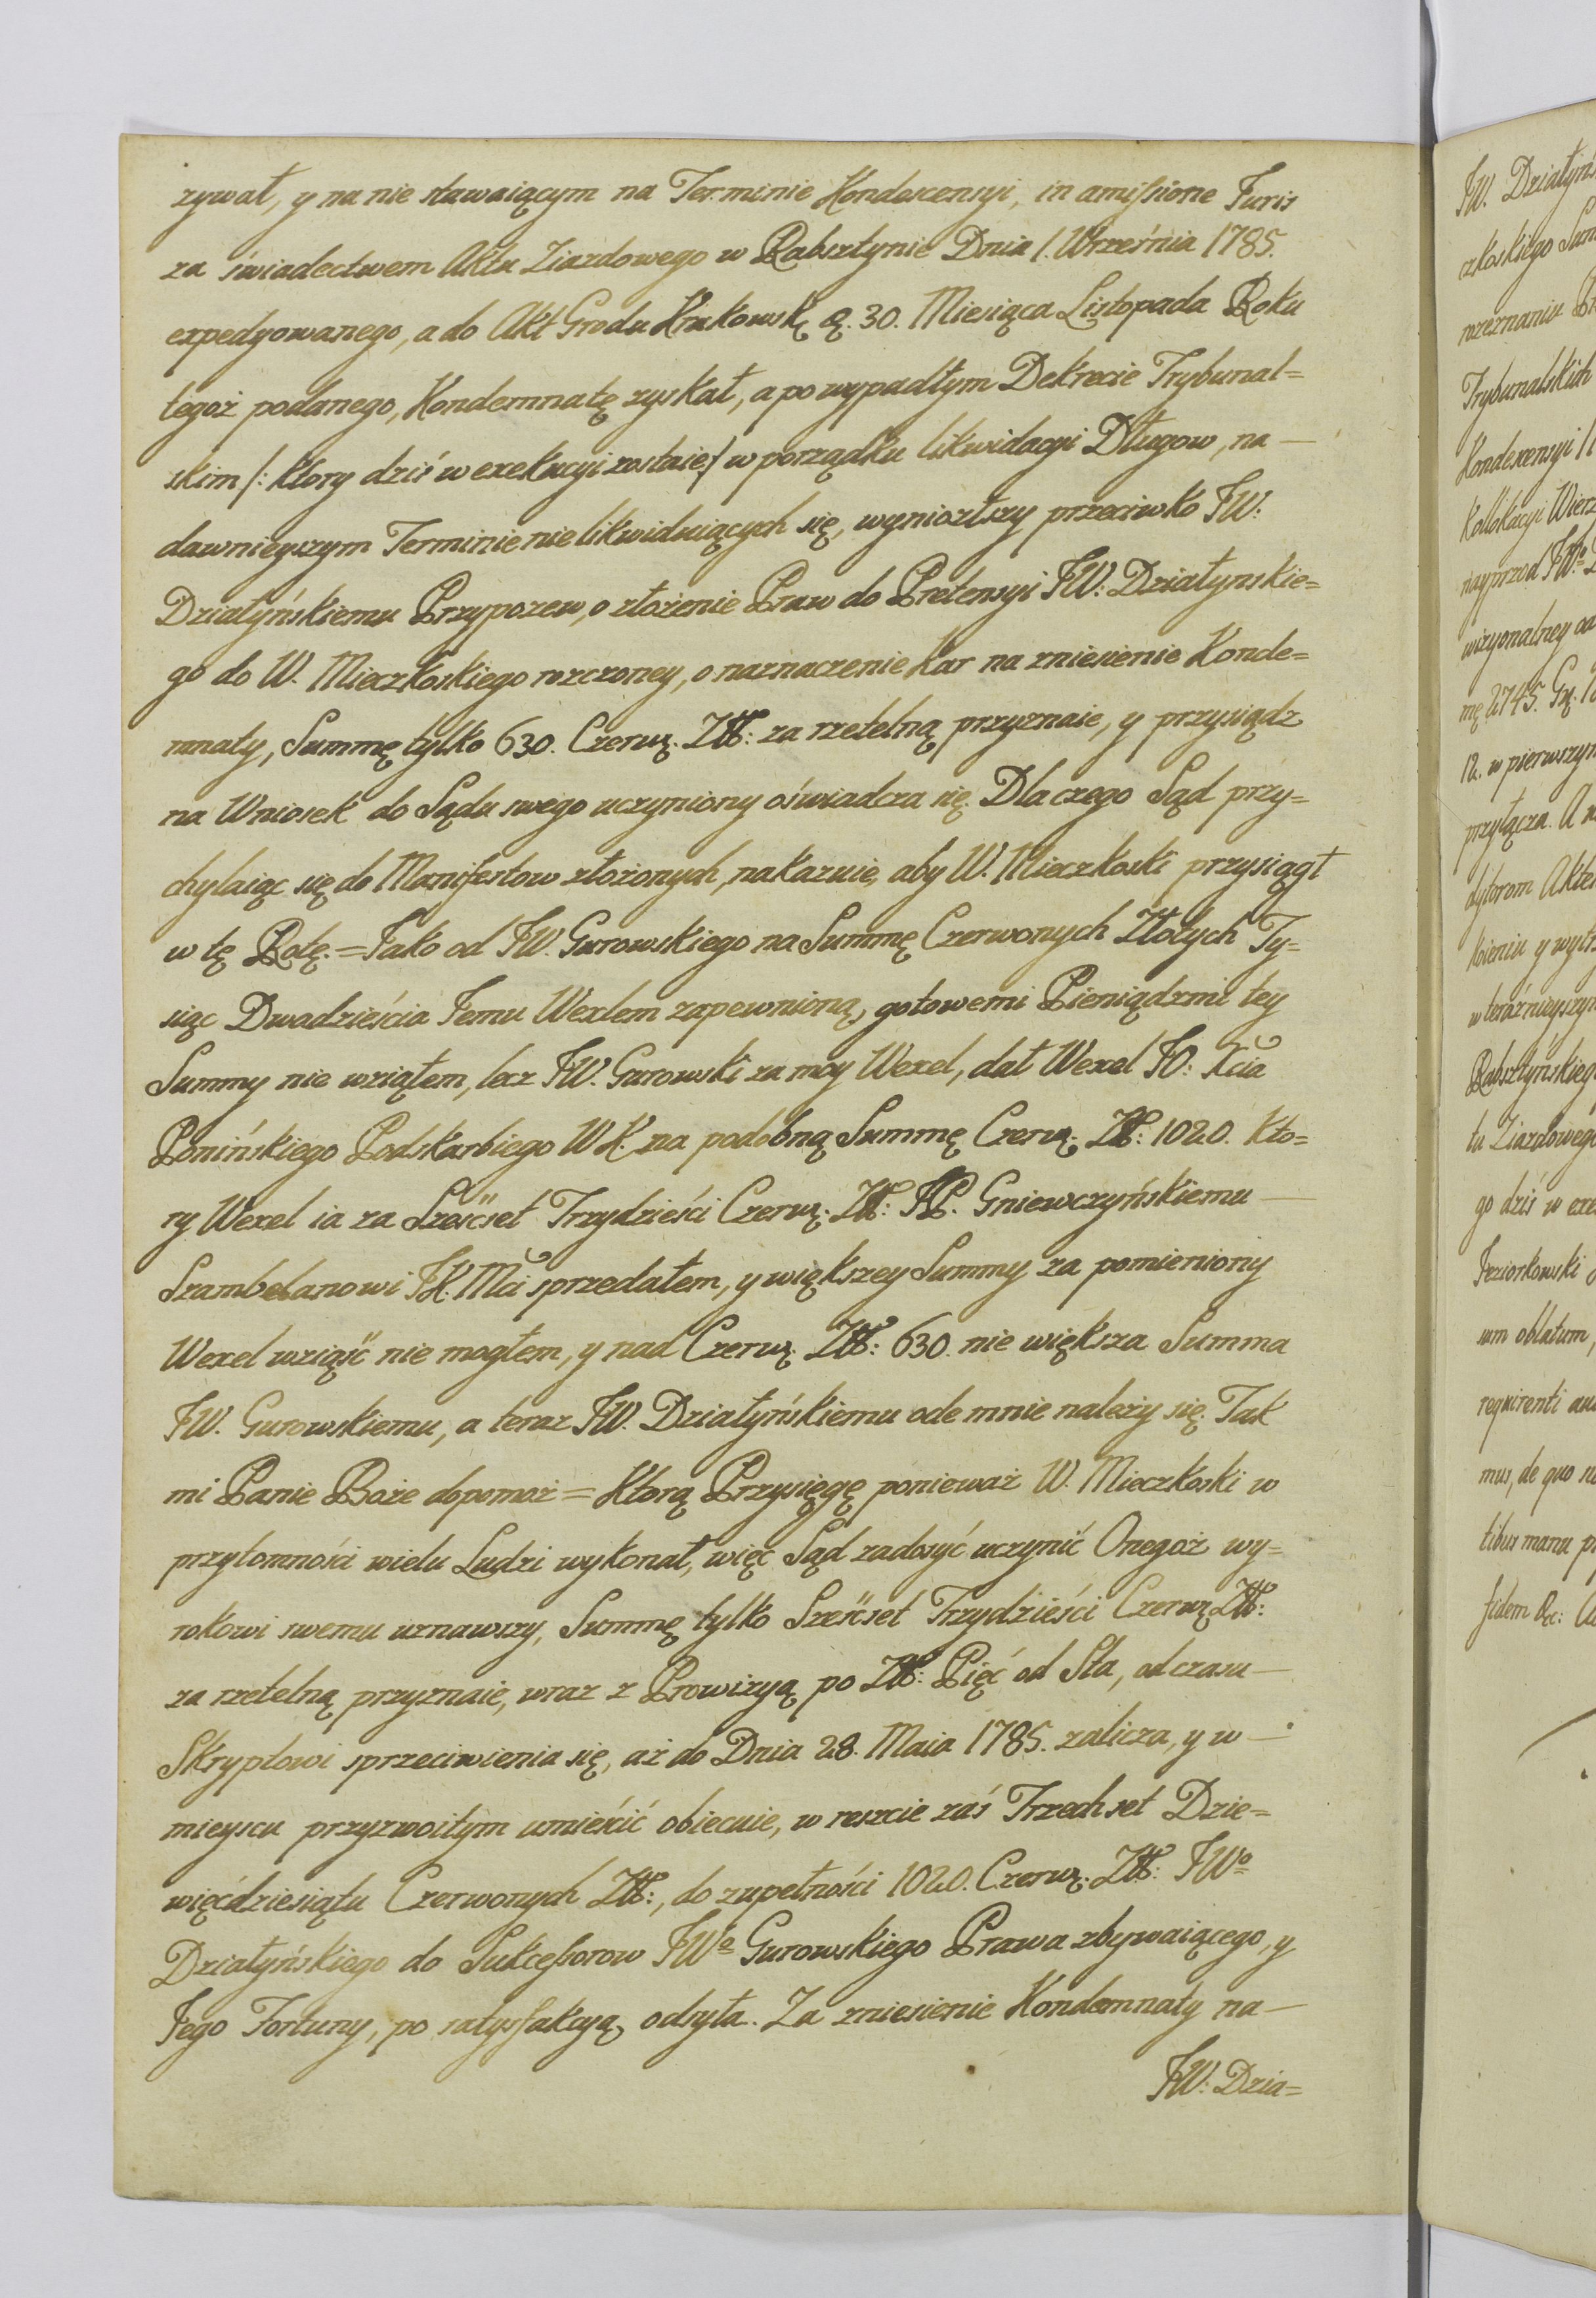 zywał, y na nie stawaiącym na Terminie Kondescensyi, in amissione Juris
za świadectwem Aktu Ziazdowego w Rabsztynie Dnia 1. Września 1785.
expedyowanego, a do Akt Grodu Krakowsk: d. 30. Miesiąca Listopada Roku
tegoż podanego, Kondemnatę zyskał, a po wypadłym Dekrecie Trybunal=
skim /: ktory dziś w exekucyi zostaie :/ w porządku likwidacyi Długow, na —
dawnieyszym Terminie nie likwiduiących się, wyniozłszy przeciwko JW:
Działyńskiemu Przypozew, o złożenie Praw do Pretensyi JW: Działynskie=
go do W. Mieczkoskiego rozczoney, o naznaczenie kar na zniesienie Konde=
mnaty, Summę tylko 630. Czerw. Zł: za rzetelną przyznaie, y przysiądz
na Wniosek do Sądu swego uczyniony oświadcza się. Dla czego Sąd przy=
chylaiąc się do Manifestow złożonych, nakazuie, aby W. Mieczkoski przysiągł
w tę Rotę. = Jako od JW. Gurowskiego na Summę Czerwonych Złotych Ty=
siąc Dwadzieścia Jemu Wexlem zapewnioną, gotowemi Pieniądzmi téy
Summy nie wziąłem, lecz JW. Gurowski za moy Wexel, dał Wexel JO: Xcia
Ponińskiego Podskarbiego WK. na podobną Summę Czerw. Zł: 1020. Kto=
ry Wexel ia za Sześćset Trzydzieści Czerw. Zł: JP. Gniewczyńskiemu —
Szambelanowi JK. Mci sprzedałem, y większey Summy za pomieniony
Wexel wziąść nie mogłem, y nad Czerw. Zł: 630. nie większa Summa
JW. Gurowskiemu, a teraz JW. Działyńskiemu ode mnie należy się. Tak
mi Panie Boże dopomoż = Ktorą Przysięgę ponieważ W. Mieczkoski w
przytomności wielu Ludzi wykonał, więc Sąd zadosyć uczynić Onegoż wy=
rokowi swemu uznawszy, Summę tylko Sześćset Trzydzieści Czerw. Zł:
za rzetelną przyznaie, wraz z Prowizyą po Zł: Pięć od Sta, od czasu —
Skryptowi sprzeciwienia się, aż do Dnia 28. Maia 1785. zalicza, y w —
mieyscu przyzwoitym umieścić obiecuie, w reszcie zaś Trzechset Dzie=
więćdziesiątu Czerwonych Zł:, do zupełności 1020. Czerw. Zł: JWo
Działyńskiego do Sukcessorow JWo Gurowskiego Prawa zbywaiącego, y
Jego Fortuny, po satysfakcyą, odsyła. Za zniesienie Kondemnaty na —
JW: Dzia=
JW. Działyńs
czkoskiego Sum
rozeznaniu
Trybunalskich
Kondexensyi
Kollokacyi Wierz
nayprzod JWo
wizyonalney od
mę 2745. Gr.
12. w pierwszym
przyłącza. A
dytorom Akte
w teraźnieyszym
Rabsztyńskieg
tu Ziazdowego
go dziś w exe
Jeziorkowski
um oblatum,
requirenti
mus, de quo
tibus manu
fidem &c: